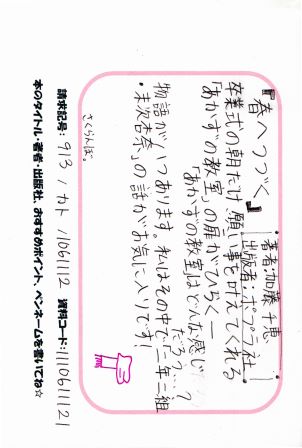 『春へつづく』
・著者：加藤千恵
・出版者：ポプラ社
卒業式の朝だけ願い事を叶えてくれる
「あかずの教室」の扉がひらく―
「あかずの教室はどんな感じ
だろう…？
物語が八つあります。私はその中で「二年二組
・末次杏奈」の話がお気に入りです！
さくらんぼ。
請求記号: 913 / カト / 1061112 資料コード: 1110611121
本のタイトル・著者・出版社、おすすめポイント、ペンネームを書いてね☆